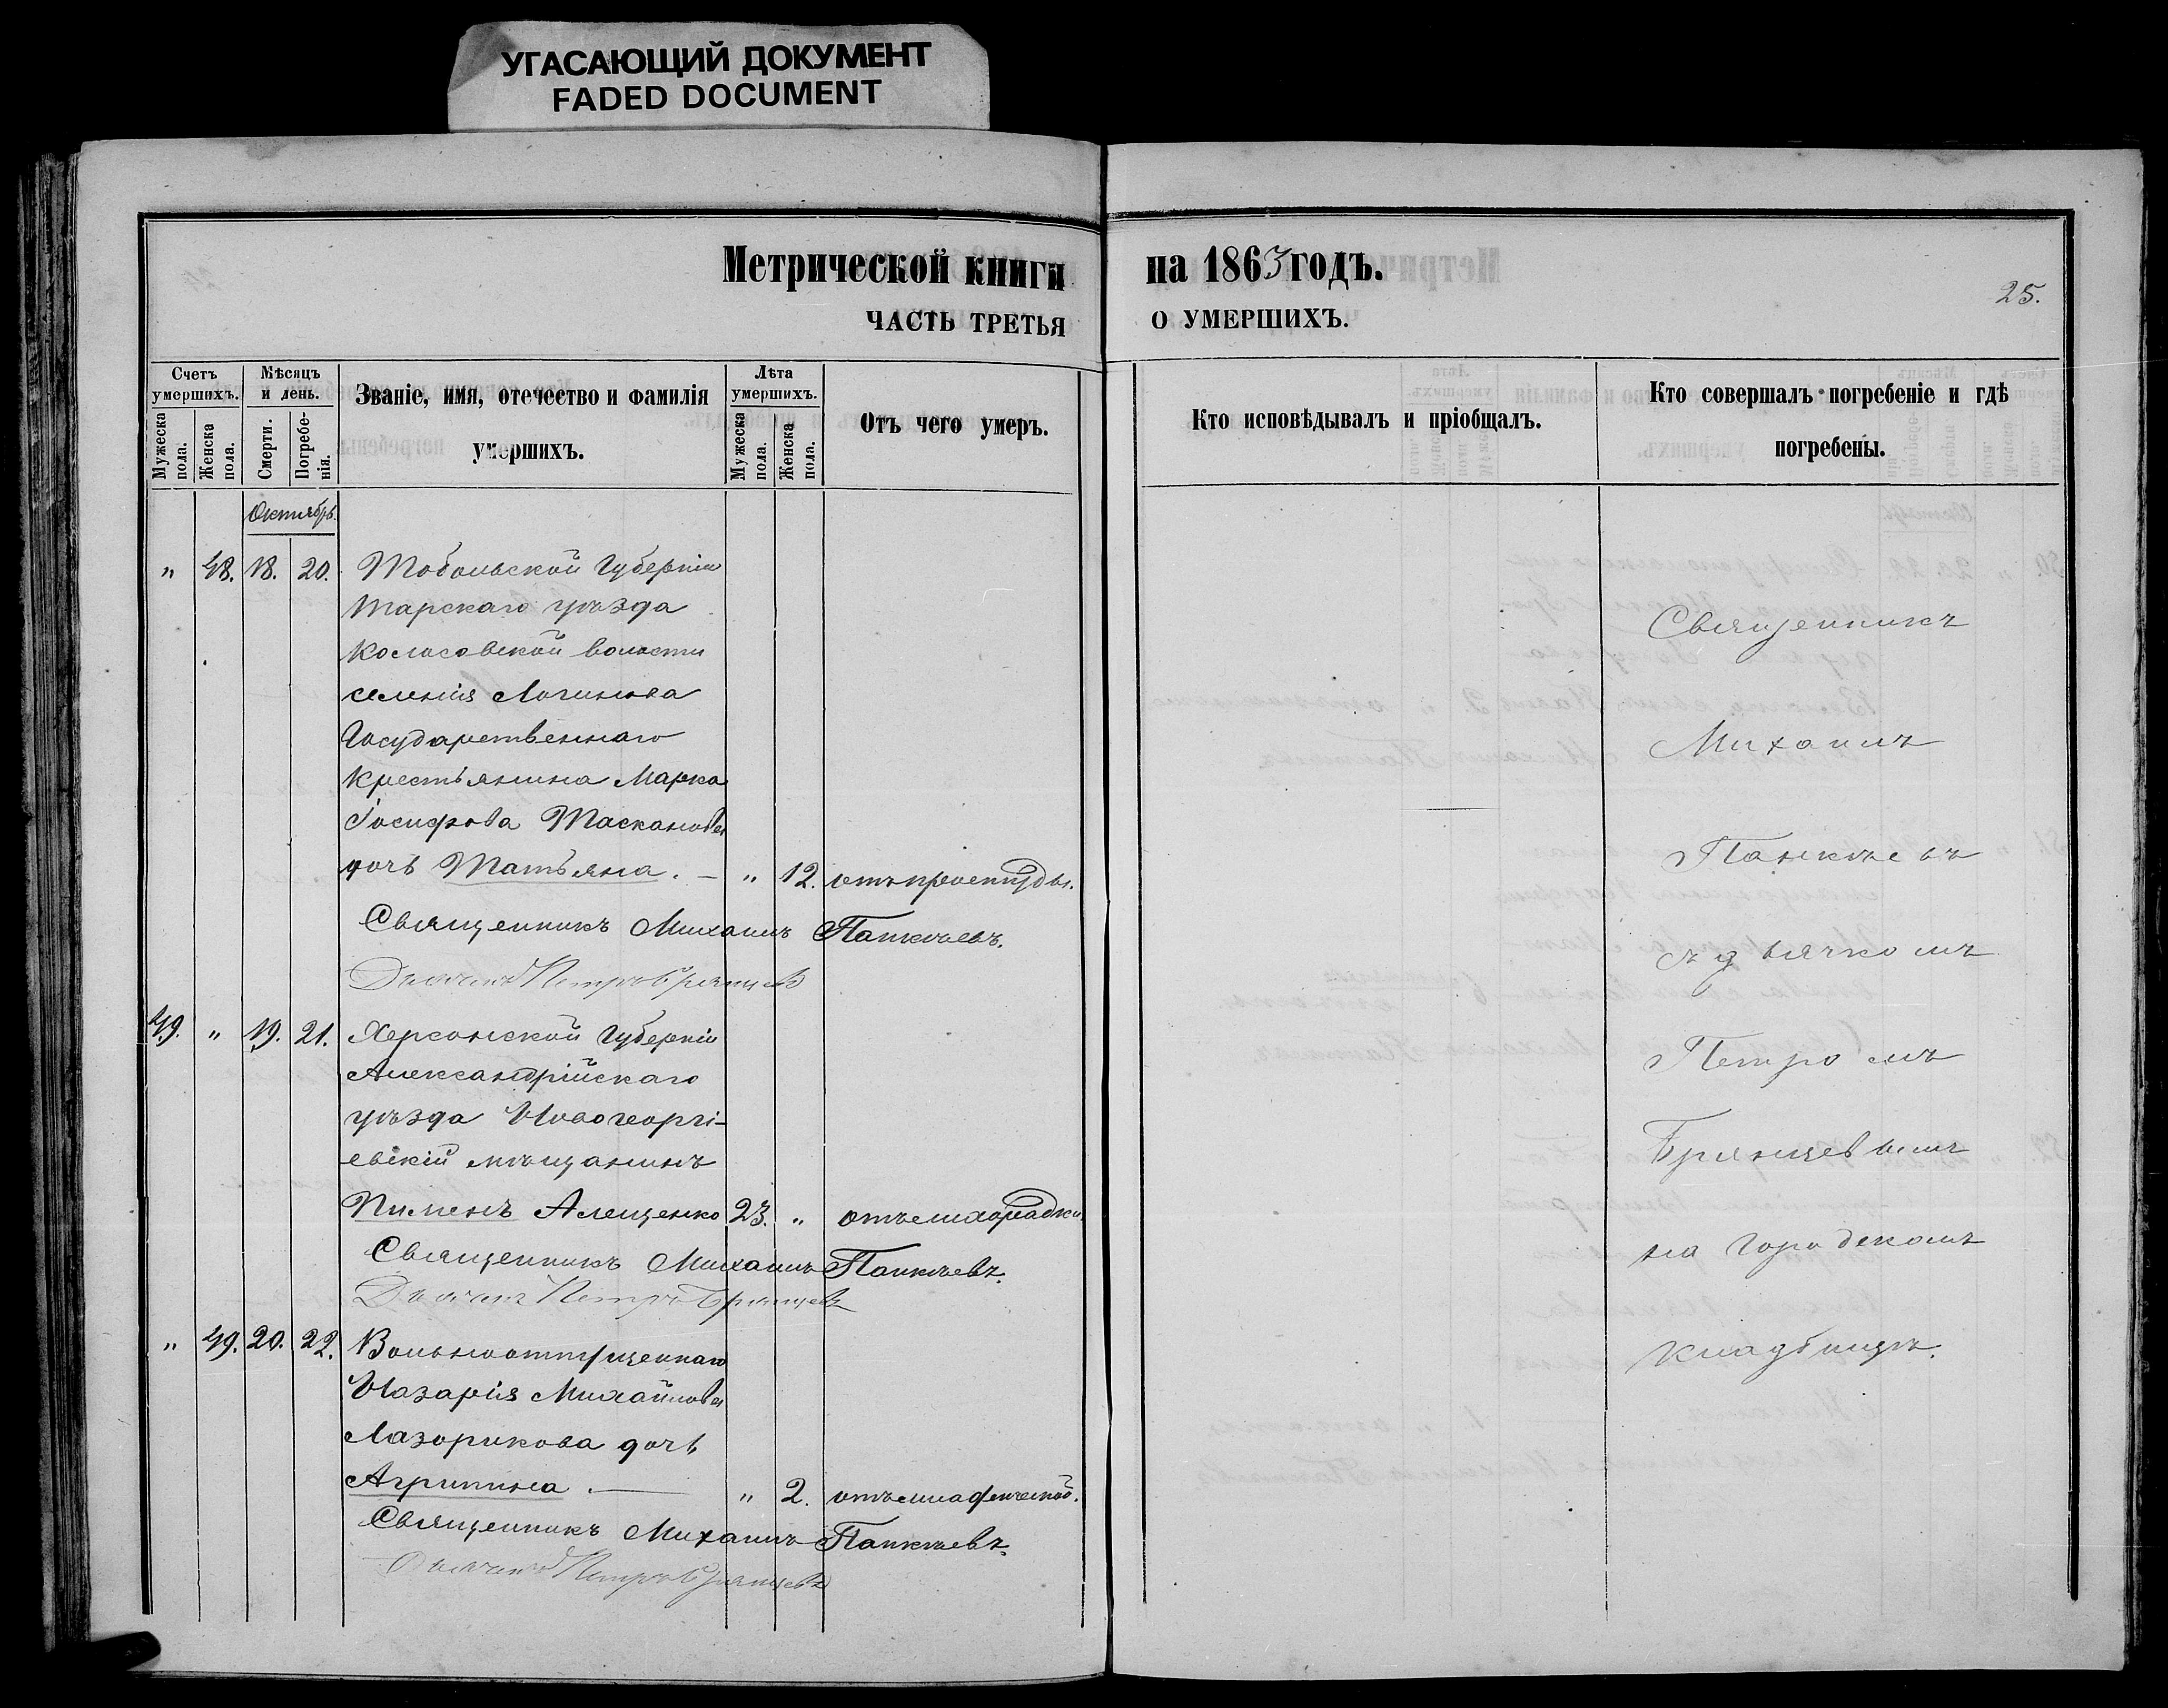 УГАСАЮЩИЙ ДОКУМЕНТ
FADED DOCUMENT
Метрической книги на 1863 годъ.
25.
ЧАСТЬ ТРЕТЬЯ О УМЕРШИХЪ.
Счетъ умершихъ.
Мужеска пола.
Женска пола.
Мѣсяцъ и день.
Смерти.
Погребенія.
Званіе, имя, отечество и фамилія
умершихъ.
Лѣта умершихъ.
Мужеска пола.
Женска пола.
Отъ чего умеръ.
Кто исповѣдывалъ и пріобщалъ.
Кто совершалъ погребеніе и гдѣ
погребены.
Октябрь.
" 48. 18. 20. Тобольской Губерніи
Тарскаго уѣзда
Колосовской волости
селенія Логинова
Государственнаго
Крестьянина Марка
Іосифова Тасканова
дочь Татьяна. — " 12. отъ простуды.
Священникъ Михаилъ Панкѣевъ.
Дьячекъ Петръ Брянцевъ
49. " 19. 21. Херсонской Губерніи
Александрійскаго
уѣзда Новогеоргі-
евскій мѣщанинъ
Пименъ Алещенко 23. " отъ лихорадки.
Священникъ Михаилъ Панкѣевъ.
Дьячекъ Петръ Брянцевъ
" 49. 20. 22. Вольноотпущеннаго
Назарія Михайлова
Лазорикова дочь
Агрипина. — " 2. отъ младенческой.
Священникъ Михаилъ Панкѣевъ.
Дьячекъ Петръ Брянцевъ
Священникъ
Михаилъ
Панкѣевъ
съ дьячкомъ
Петромъ
Брянцевымъ
на Городскомъ
кладбищѣ.